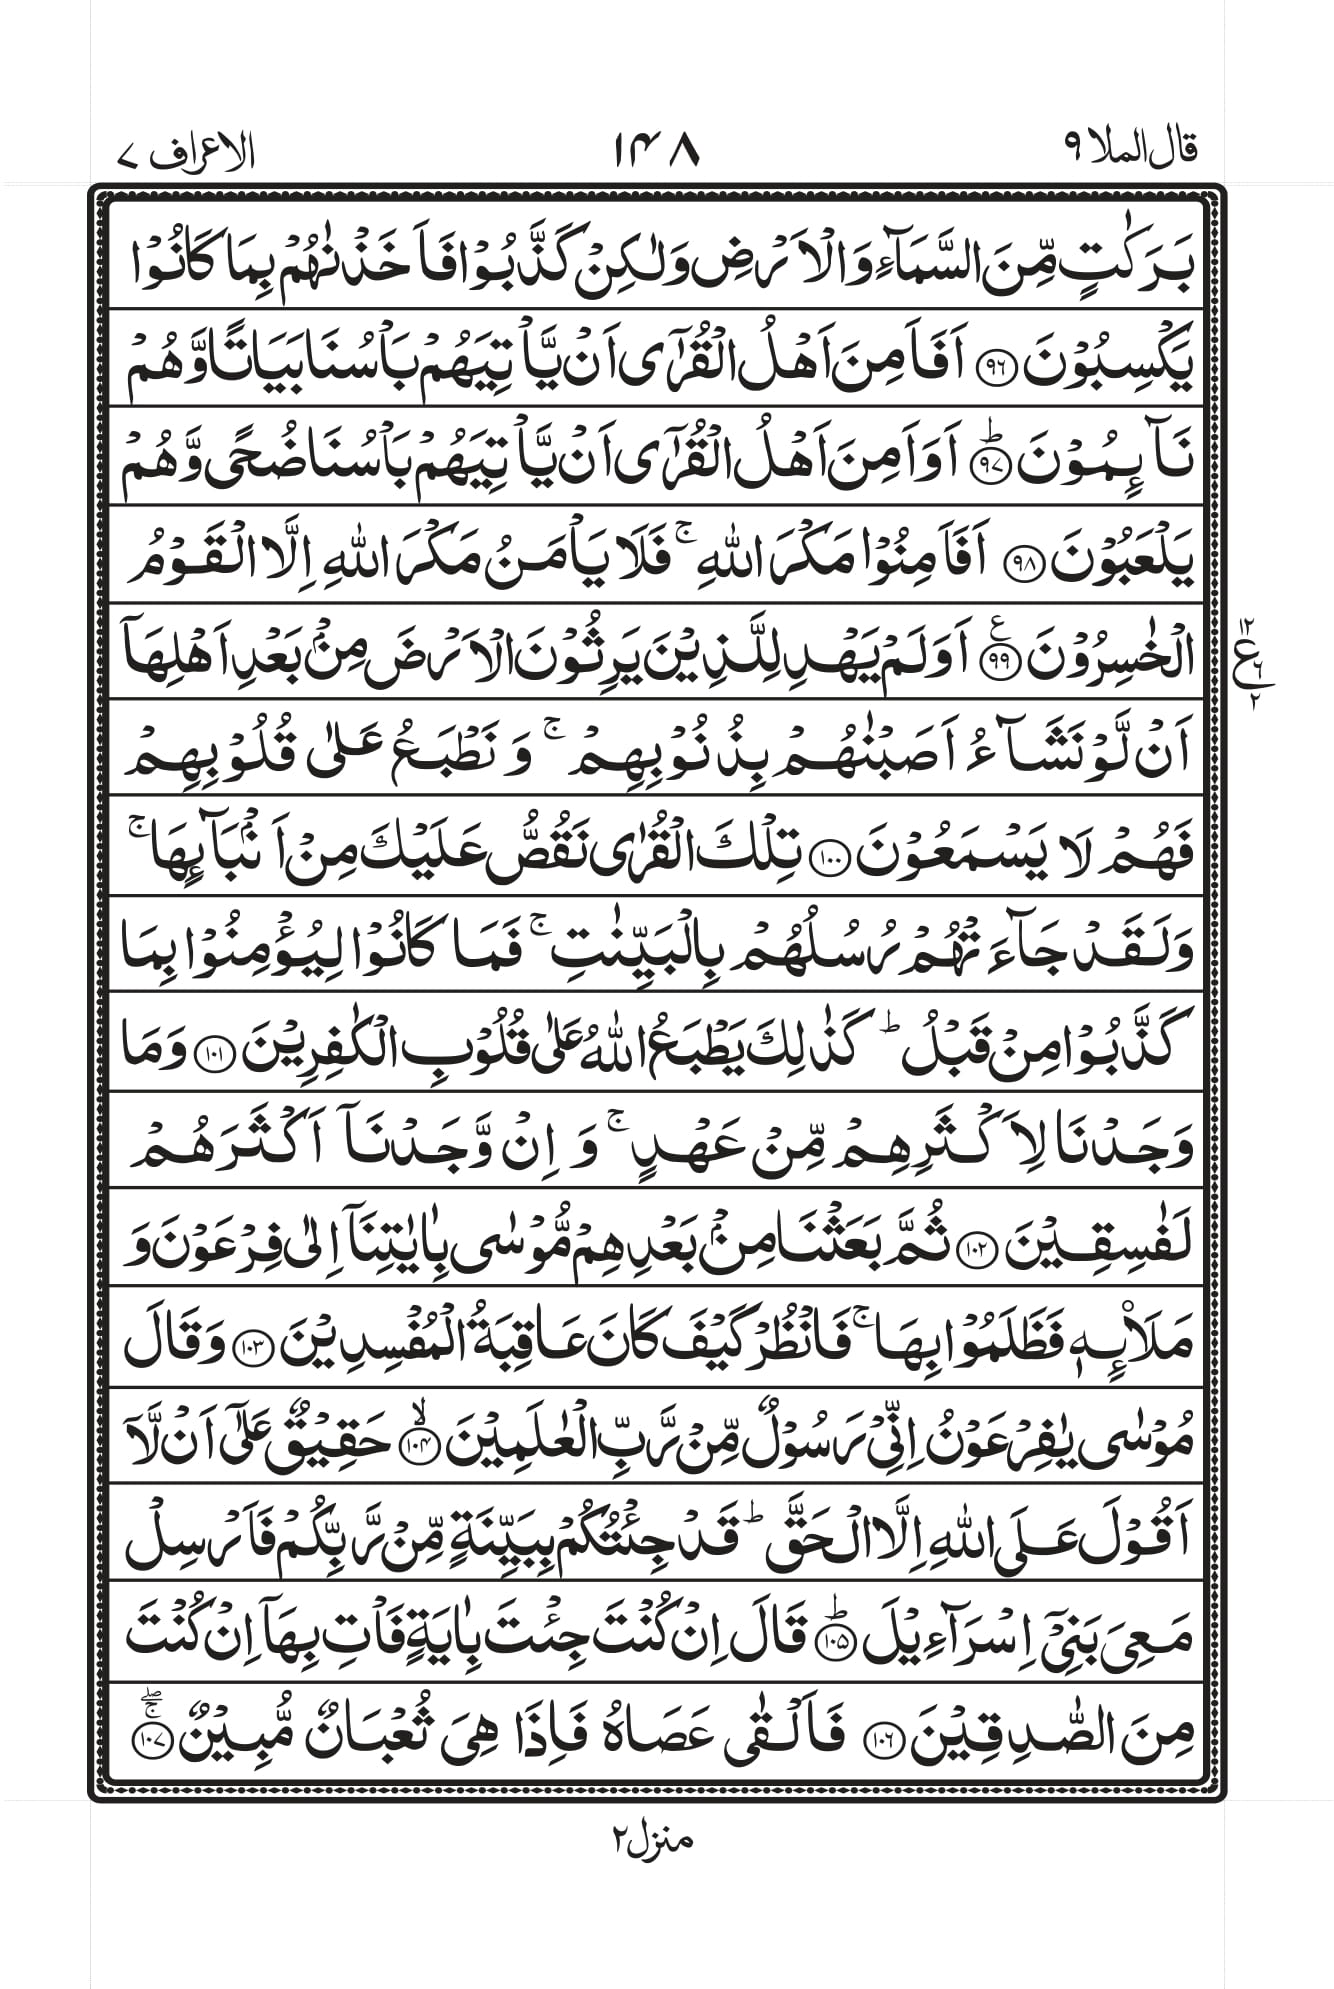 قال الملا ٩
١٤٨
الاعراف ٧
بَرَكٰتٍ مِّنَ السَّمَآءِ وَالْاَرْضِ وَلٰكِنْ كَذَّبُوْا فَاَخَذْنٰهُمْ بِمَا كَانُوْا
يَكْسِبُوْنَ ﴿٩٦﴾ اَفَاَمِنَ اَهْلُ الْقُرٰٓى اَنْ يَّاْتِيَهُمْ بَاْسُنَا بَيَاتًا وَّهُمْ
نَآئِمُوْنَ ﴿٩٧﴾ؕ اَوَاَمِنَ اَهْلُ الْقُرٰٓى اَنْ يَّاْتِيَهُمْ بَاْسُنَا ضُحًى وَّهُمْ
يَلْعَبُوْنَ ﴿٩٨﴾ اَفَاَمِنُوْا مَكْرَ اللّٰهِ ۚ فَلَا يَاْمَنُ مَكْرَ اللّٰهِ اِلَّا الْقَوْمُ
الْخٰسِرُوْنَ ﴿٩٩﴾ع اَوَلَمْ يَهْدِ لِلَّذِيْنَ يَرِثُوْنَ الْاَرْضَ مِنْۢ بَعْدِ اَهْلِهَآ
١٢ ع ٦ ٢
اَنْ لَّوْ نَشَآءُ اَصَبْنٰهُمْ بِذُنُوْبِهِمْ ۚ وَنَطْبَعُ عَلٰى قُلُوْبِهِمْ
فَهُمْ لَا يَسْمَعُوْنَ ﴿١٠٠﴾ تِلْكَ الْقُرٰى نَقُصُّ عَلَيْكَ مِنْ اَنْۢبَآئِهَا ۚ
وَلَقَدْ جَآءَتْهُمْ رُسُلُهُمْ بِالْبَيِّنٰتِ ۚ فَمَا كَانُوْا لِيُؤْمِنُوْا بِمَا
كَذَّبُوْا مِنْ قَبْلُ ؕ كَذٰلِكَ يَطْبَعُ اللّٰهُ عَلٰى قُلُوْبِ الْكٰفِرِيْنَ ﴿١٠١﴾ وَمَا
وَجَدْنَا لِاَكْثَرِهِمْ مِّنْ عَهْدٍ ۚ وَاِنْ وَّجَدْنَآ اَكْثَرَهُمْ
لَفٰسِقِيْنَ ﴿١٠٢﴾ ثُمَّ بَعَثْنَا مِنْۢ بَعْدِهِمْ مُّوْسٰى بِاٰيٰتِنَآ اِلٰى فِرْعَوْنَ وَ
مَلَا۟ئِهٖ فَظَلَمُوْا بِهَا ۚ فَانْظُرْ كَيْفَ كَانَ عَاقِبَةُ الْمُفْسِدِيْنَ ﴿١٠٣﴾ وَقَالَ
مُوْسٰى يٰفِرْعَوْنُ اِنِّيْ رَسُوْلٌ مِّنْ رَّبِّ الْعٰلَمِيْنَ ﴿١٠٤﴾ۙ حَقِيْقٌ عَلٰٓى اَنْ لَّآ
اَقُوْلَ عَلَى اللّٰهِ اِلَّا الْحَقَّ ؕ قَدْ جِئْتُكُمْ بِبَيِّنَةٍ مِّنْ رَّبِّكُمْ فَاَرْسِلْ
مَعِيَ بَنِيْٓ اِسْرَآءِيْلَ ﴿١٠٥﴾ؕ قَالَ اِنْ كُنْتَ جِئْتَ بِاٰيَةٍ فَاْتِ بِهَآ اِنْ كُنْتَ
مِنَ الصّٰدِقِيْنَ ﴿١٠٦﴾ فَاَلْقٰى عَصَاهُ فَاِذَا هِيَ ثُعْبَانٌ مُّبِيْنٌ ﴿١٠٧﴾ۚۖ
منزل ٢